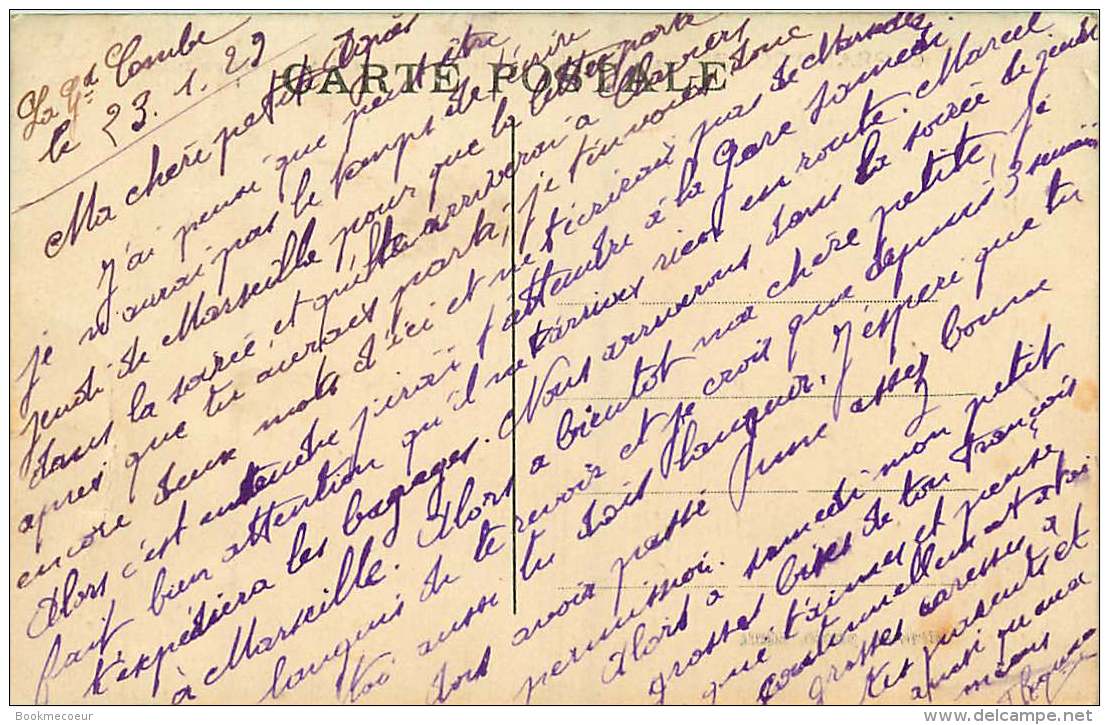 La Gd Combe
le 23. 1. 29
CARTE POSTALE
Ma chère petite Agnès
J'ai pensé que peut être
je n'aurai pas le temps de t'écrire
jeudi de Marseille pour que la lettre parte
dans la soirée, et qu'elle arriverai à
après que tu aurais parti, je t'envoie donc
encore deux mots d'ici et ne t'écrirai pas de Marseille
Alors c'est entendu j'irai t'attendre à la gare samedi.
fait bien attention qu'il ne t'arrive rien en route. Marcel
t'expédiera les bagages. Nous arriverons dans la soirée de jeudi
à Marseille. Alors a bientot ma chère petite, je
languis de te revoir et je crois que depuis 3 semaines
toi aussi tu dois languir. J'espère que tu
dois avoir passé une assez bonne
permission.
Alors a samedi mon petit
grosses bises de ton François
que t'aimes et pense
continuellement a toi
grosses caresses à
tes parents et
ainsi qu'aux
miens